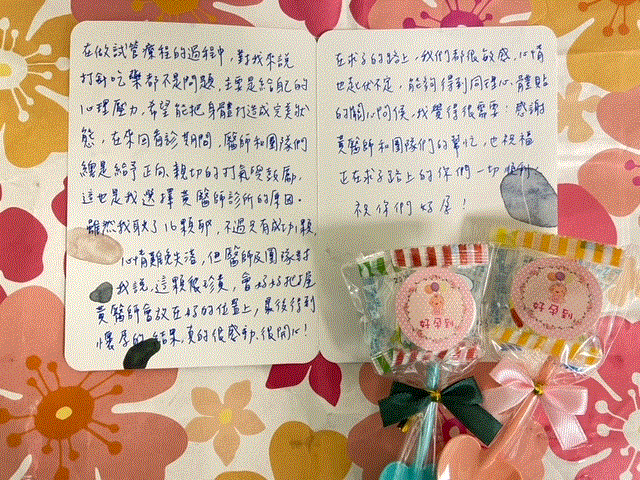 在做試管療程的過程中，對我來說
打針吃藥都不是問題，主要是給自己的
心理壓力，希望能把身體打造成完美狀
態，在來回看診期間，醫師和團隊們
總是給予正向、親切的打氣與鼓勵，
這也是我選擇黃醫師診所的原因。
雖然我取了16顆卵，不過只有成功1顆，
心情難免失落，但醫師及團隊都
我說，這顆很珍貴，會好好把握
黃醫師會放在好的位置上，最後得到
懷孕的結果，真的很感動、很開心！
在求子的路上，我們都很敏感，心情
也起伏不定，能夠得到同理心、體貼
的關心問候，我覺得很需要！感謝
黃醫師和團隊們的幫忙，也祝福
正在求子路上的你們一切順利，
祝你們好孕！
好孕到
好孕到